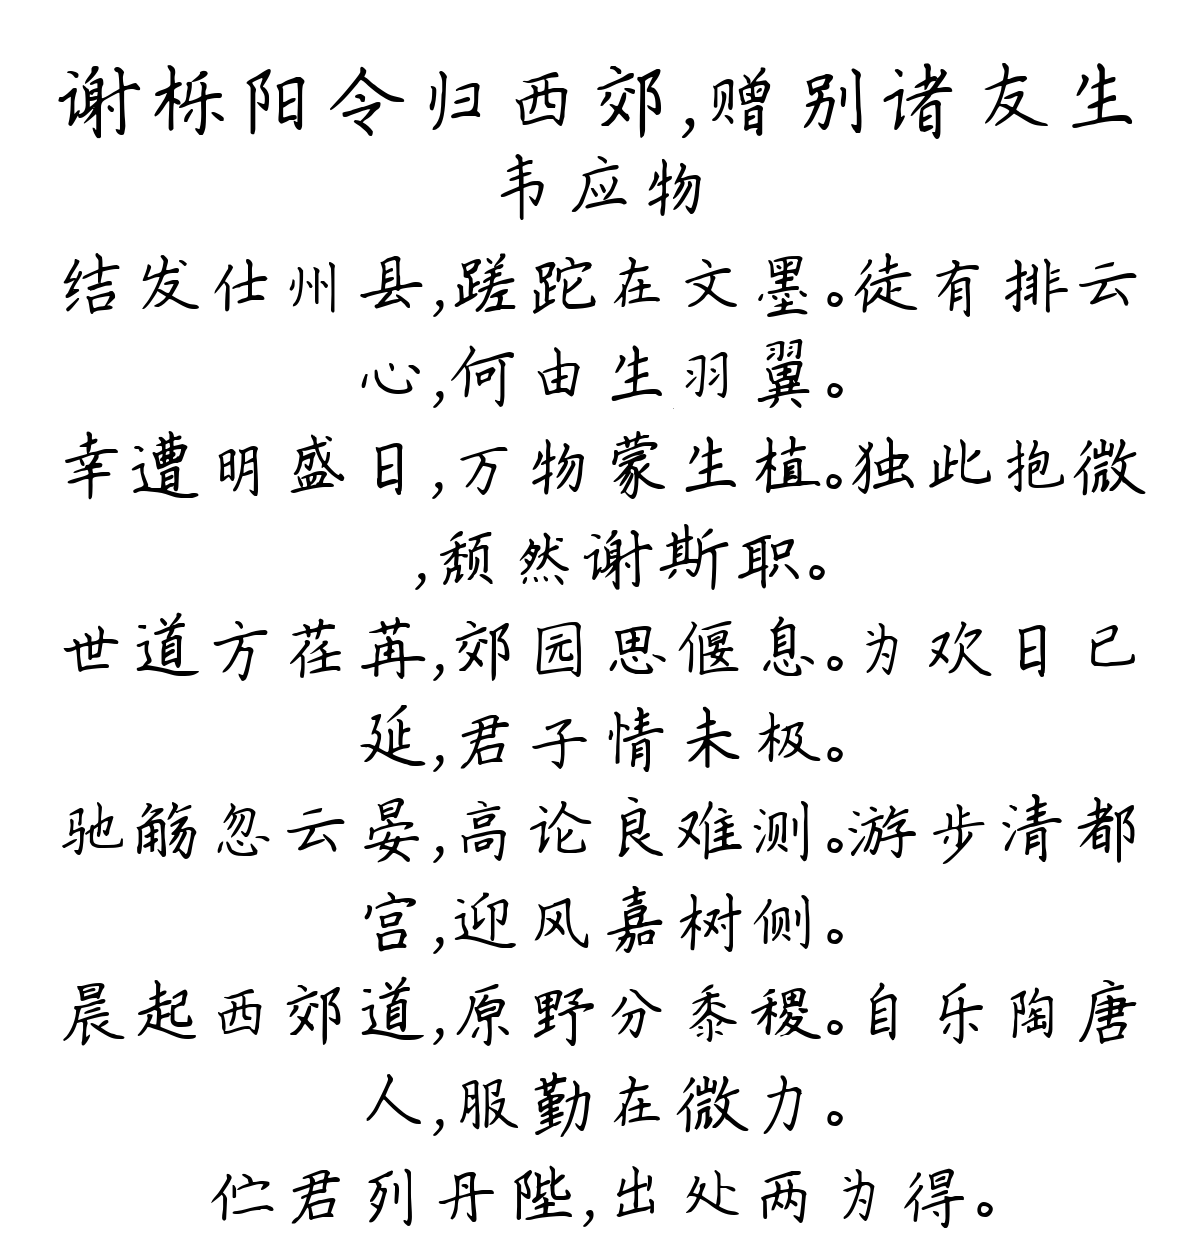 谢栎阳令归西郊,赠别诸友生
韦应物
结发仕州县,蹉跎在文墨。徒有排云
心,何由生羽翼。
幸遭明盛日,万物蒙生植。独此抱微
,颓然谢斯职。
世道方荏苒,郊园思偃息。为欢日已
延,君子情未极。
驰觞忽云晏,高论良难测。游步清都
宫,迎风嘉树侧。
晨起西郊道,原野分黍稷。自乐陶唐
人,服勤在微力。
伫君列丹陛,出处两为得。